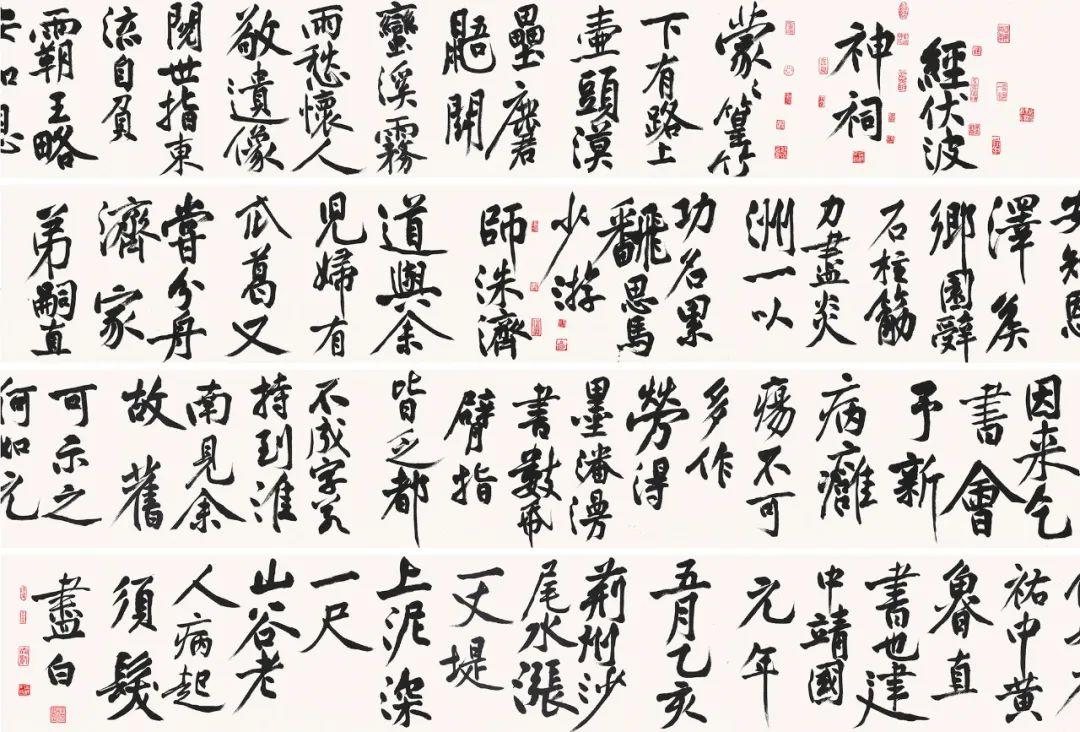 經伏波
神祠
蒙〻篁竹
下有路上
壷頭漢
壘麏
鼯鬥
蠻溪霧
雨愁懷人
敬遺像
閱世指東
流自負
霸王略
安知恩
澤矦
鄉園辭
石柱筋
力盡炎
洲一以
功名累
飜思馬
少游
師洙濟
道與余
兒婦有
瓜葛又
嘗分舟
濟家
弟嗣直
因来乞
書會
予新
病癰
瘍不可
多作
勞得
墨瀋漫
書數帋
臂指
皆乏都
不成字若
持到淮
南見余
故舊
可示之
何如元
祐中黃
魯直
書也建
中靖國
元年
五月乙亥
荊州沙
尾水漲
一丈堤
上泥深
一尺
山谷老
人病起
須髮
盡白